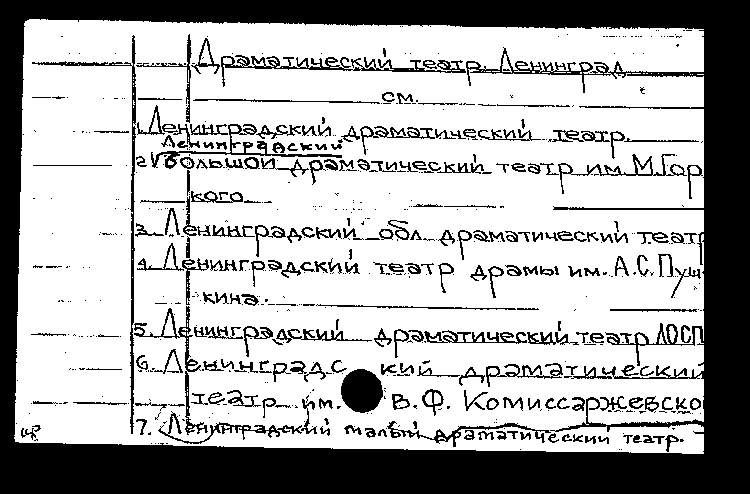 Драматический театр. Ленинград
см.
1. Ленинградский драматический театр.
Ленинградский
2. V большой драматический театр им. М. Гор
кого
3. Ленинградский обл. драматический театр
4. Ленинградский театр драмы им. А.С. Пуш-
кина.
5. Ленинградский драматический театр ЛОСП
6. Ленинградский драматический
театр им. В.Ф. Комиссаржевско
7. Ленинградский малый драматический театр.